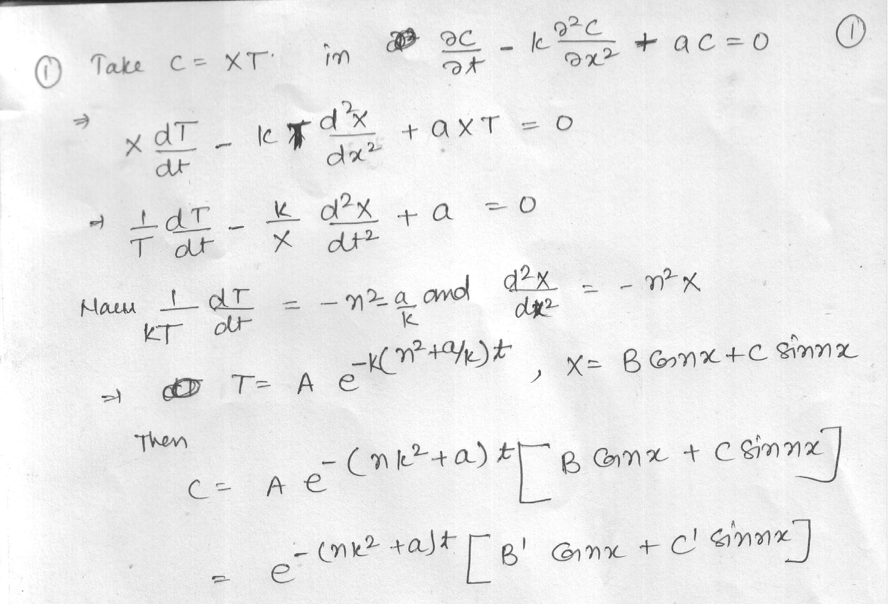 ① Take C = XT. in ∂C/∂t - k ∂²C/∂x² + aC = 0 ①
⇒ X dT/dt - kT d²X/dx² + aXT = 0
⇒ 1/T dT/dt - k/X d²X/dt² + a = 0
1/KT dT/dt = -n² - a/k and d²X/dx² = -n²X
⇒ T = A e^{-k(n²+a/k)t}, X = B Cosnx + C Sinnx
Then
C = A e^{-(nk²+a)t} [B Cosnx + C Sinnx]
= e^{-(nk²+a)t} [B' Cosnx + C' Sinnx]